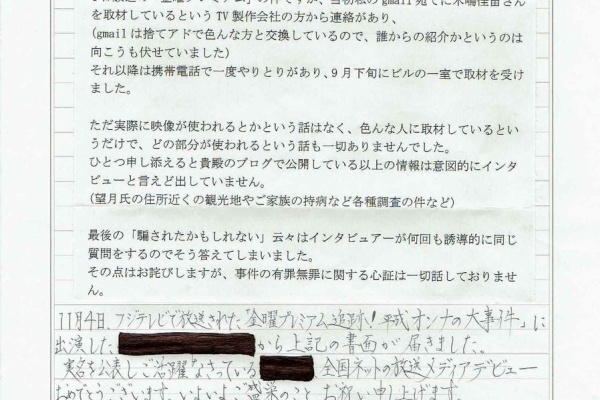 を取材しているという TV 製作会社の方から連絡があり、
(gmail は捨てアドで色んな方と交換しているので、誰からの紹介かというのは
向こうも伏せていました)
それ以降は携帯電話で一度やりとりがあり、9 月下旬にビルの一室で取材を受け
ました。
ただ実際に映像が使われるとかという話はなく、色んな人に取材しているとい
うだけで、どの部分が使われるという話も一切ありませんでした。
ひとつ申し添えると貴殿のブログで公開している以上の情報は意図的にインタ
ビューと言えど出していません。
(望月氏の住所近くの観光地やご家族の持病など各種調査の件など)
最後の「騙されたかもしれない」云々はインタビュアーが何回も誘導的に同じ
質問をするのでそう答えてしまいました。
その点はお詫びしますが、事件の有罪無罪に関する心証は一切話しておりませ
ん。
11月4日、フジテレビで放送された「金曜プレミアム追跡!平成オンナの大事件」に
出演した から上記の書面が届きました。
実名を公表しご活躍なさっている 全国ネットの放送メディアデビュー
おめでとうございます。いよいよご盛栄のこととお祝い申し上げます。